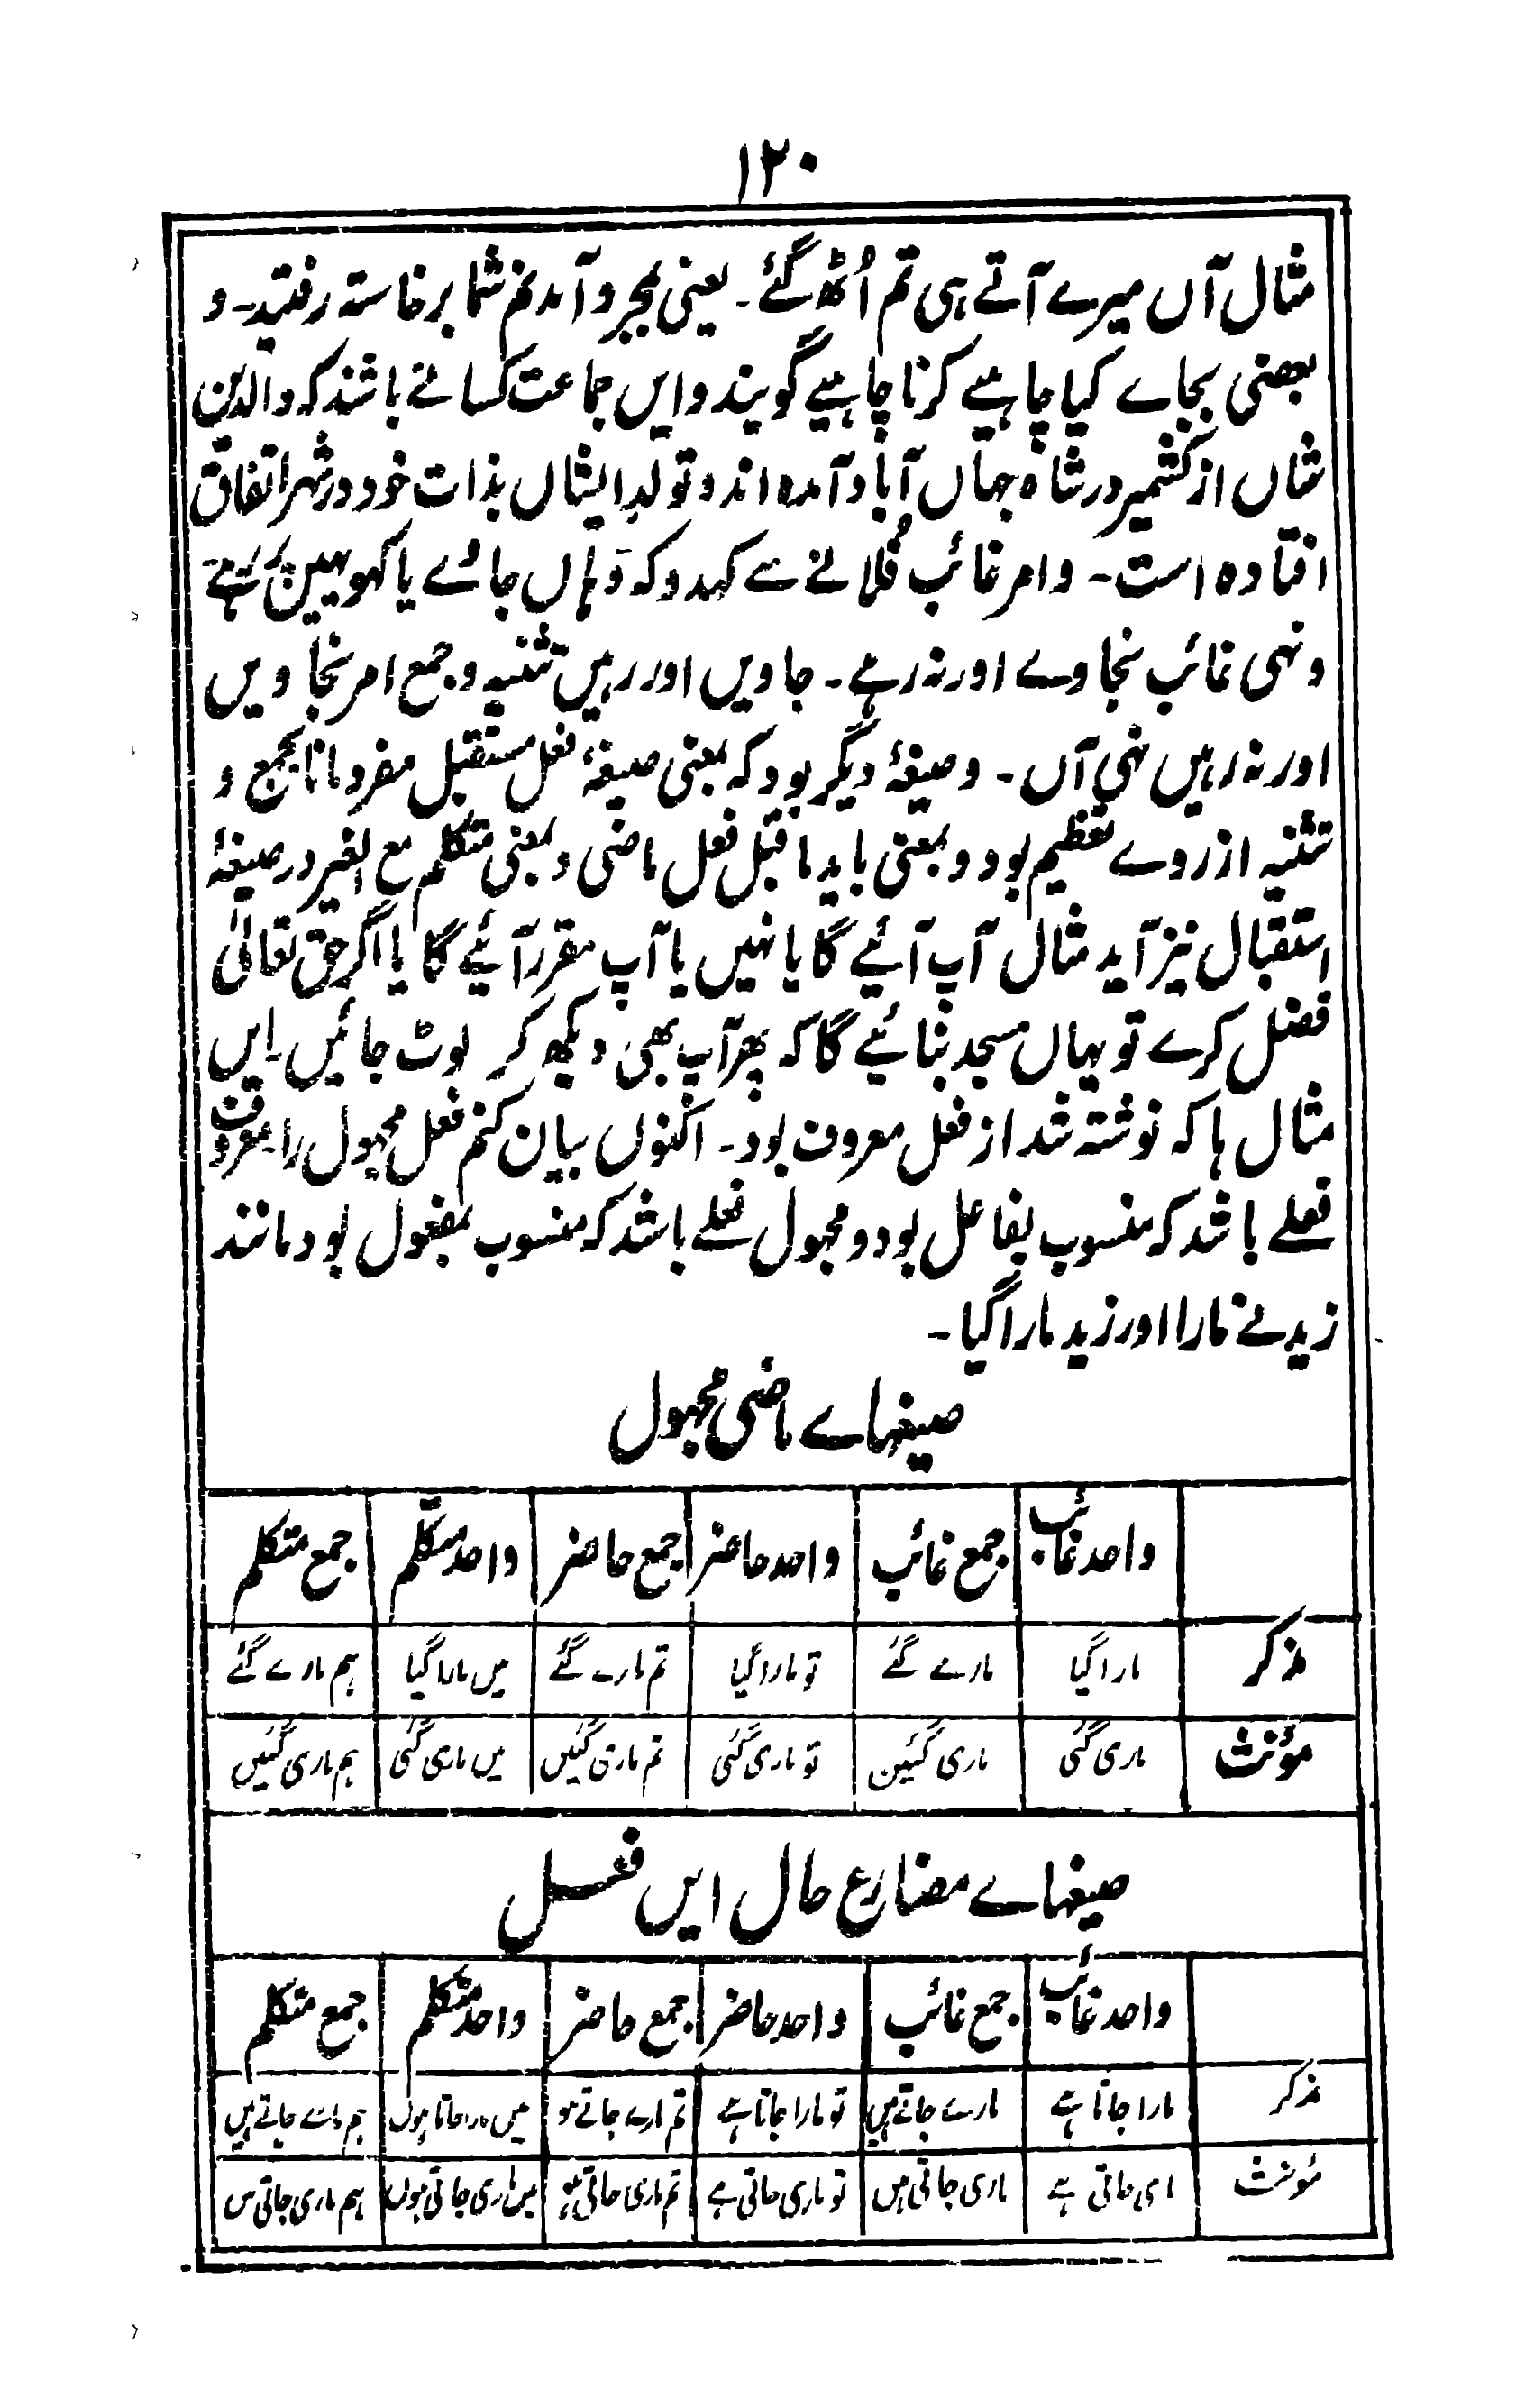 ۱۲۰
مثال آں میرے آتے ہی تم اُٹھ گئے۔ یعنی بمجرد آمدنم شما برخاستہ رفتید۔ و
بعضی بجاے کیا چاہیے کرنا چاہیے گویند و ایں جماعت کسانے باشند کہ والدین
شاں از کشمیر در شاہ جہاں آباد آمدہ اند و تولد ایشاں بذات خود در شہر اتفاق
افتادہ است۔ و امر غائب فُلانے سے کہدو کہ وہاں جائے یا کہو یہیں رہے
و نہی غائب نجاوے اور نہ رہے۔ جاویں اور رہیں تثنیہ و جمع امر نجاویں
اور نہ رہیں نہی آں۔ و صیغۂ دیگر بود کہ بمعنی صیغۂ فعل مستقبل مفرد مانا بجمع و
تثنیہ از روے تعظیم بود و بمعنی باید ماقبل فعل ماضی و بمعنی متکلم مع الغیر در صیغۂ
استقبال نیز آید مثال آپ آئیے گا یا نہیں یا آپ مقرر آئیے گا یا اگر حق تعالیٰ
فضل کرے تو یہاں مسجد بنائیے گا کہ پھر آپ بھی دیکھ کر لوٹ جائیں۔ ایں
مثال ہا کہ نوشتہ شد از فعل معروف بود۔ اکنوں بیان کنم فعل مجہول را۔ معروف
فعلے باشد کہ منسوب بفاعل بود و مجہول فعلے باشد کہ منسوب بمفعول بود مانند
زید نے مارا اور زید مارا گیا۔
صیغہاے ماضی مجہول
واحد غائب جمع غائب واحد حاضر جمع حاضر واحد متکلم جمع متکلم
مذکر مارا گیا مارے گئے تو مارا گیا تم مارے گئے میں مارا گیا ہم مارے گئے
مؤنث ماری گئی ماری گئین تو ماری گئی تم ماری گئیں میں ماری گئی ہم ماری گئیں
صیغہاے مضارع حال ایں فعل
واحد غائب جمع غائب واحد حاضر جمع حاضر واحد متکلم جمع متکلم
مذکر مارا جاتا ہے مارے جاتے ہیں تو مارا جاتا ہے تم مارے جاتے ہو میں مارا جاتا ہوں ہم مارے جاتے ہیں
مؤنث ماری جاتی ہے ماری جاتی ہیں تو ماری جاتی ہے تم ماری جاتی ہو میں ماری جاتی ہوں ہم ماری جاتی ہیں